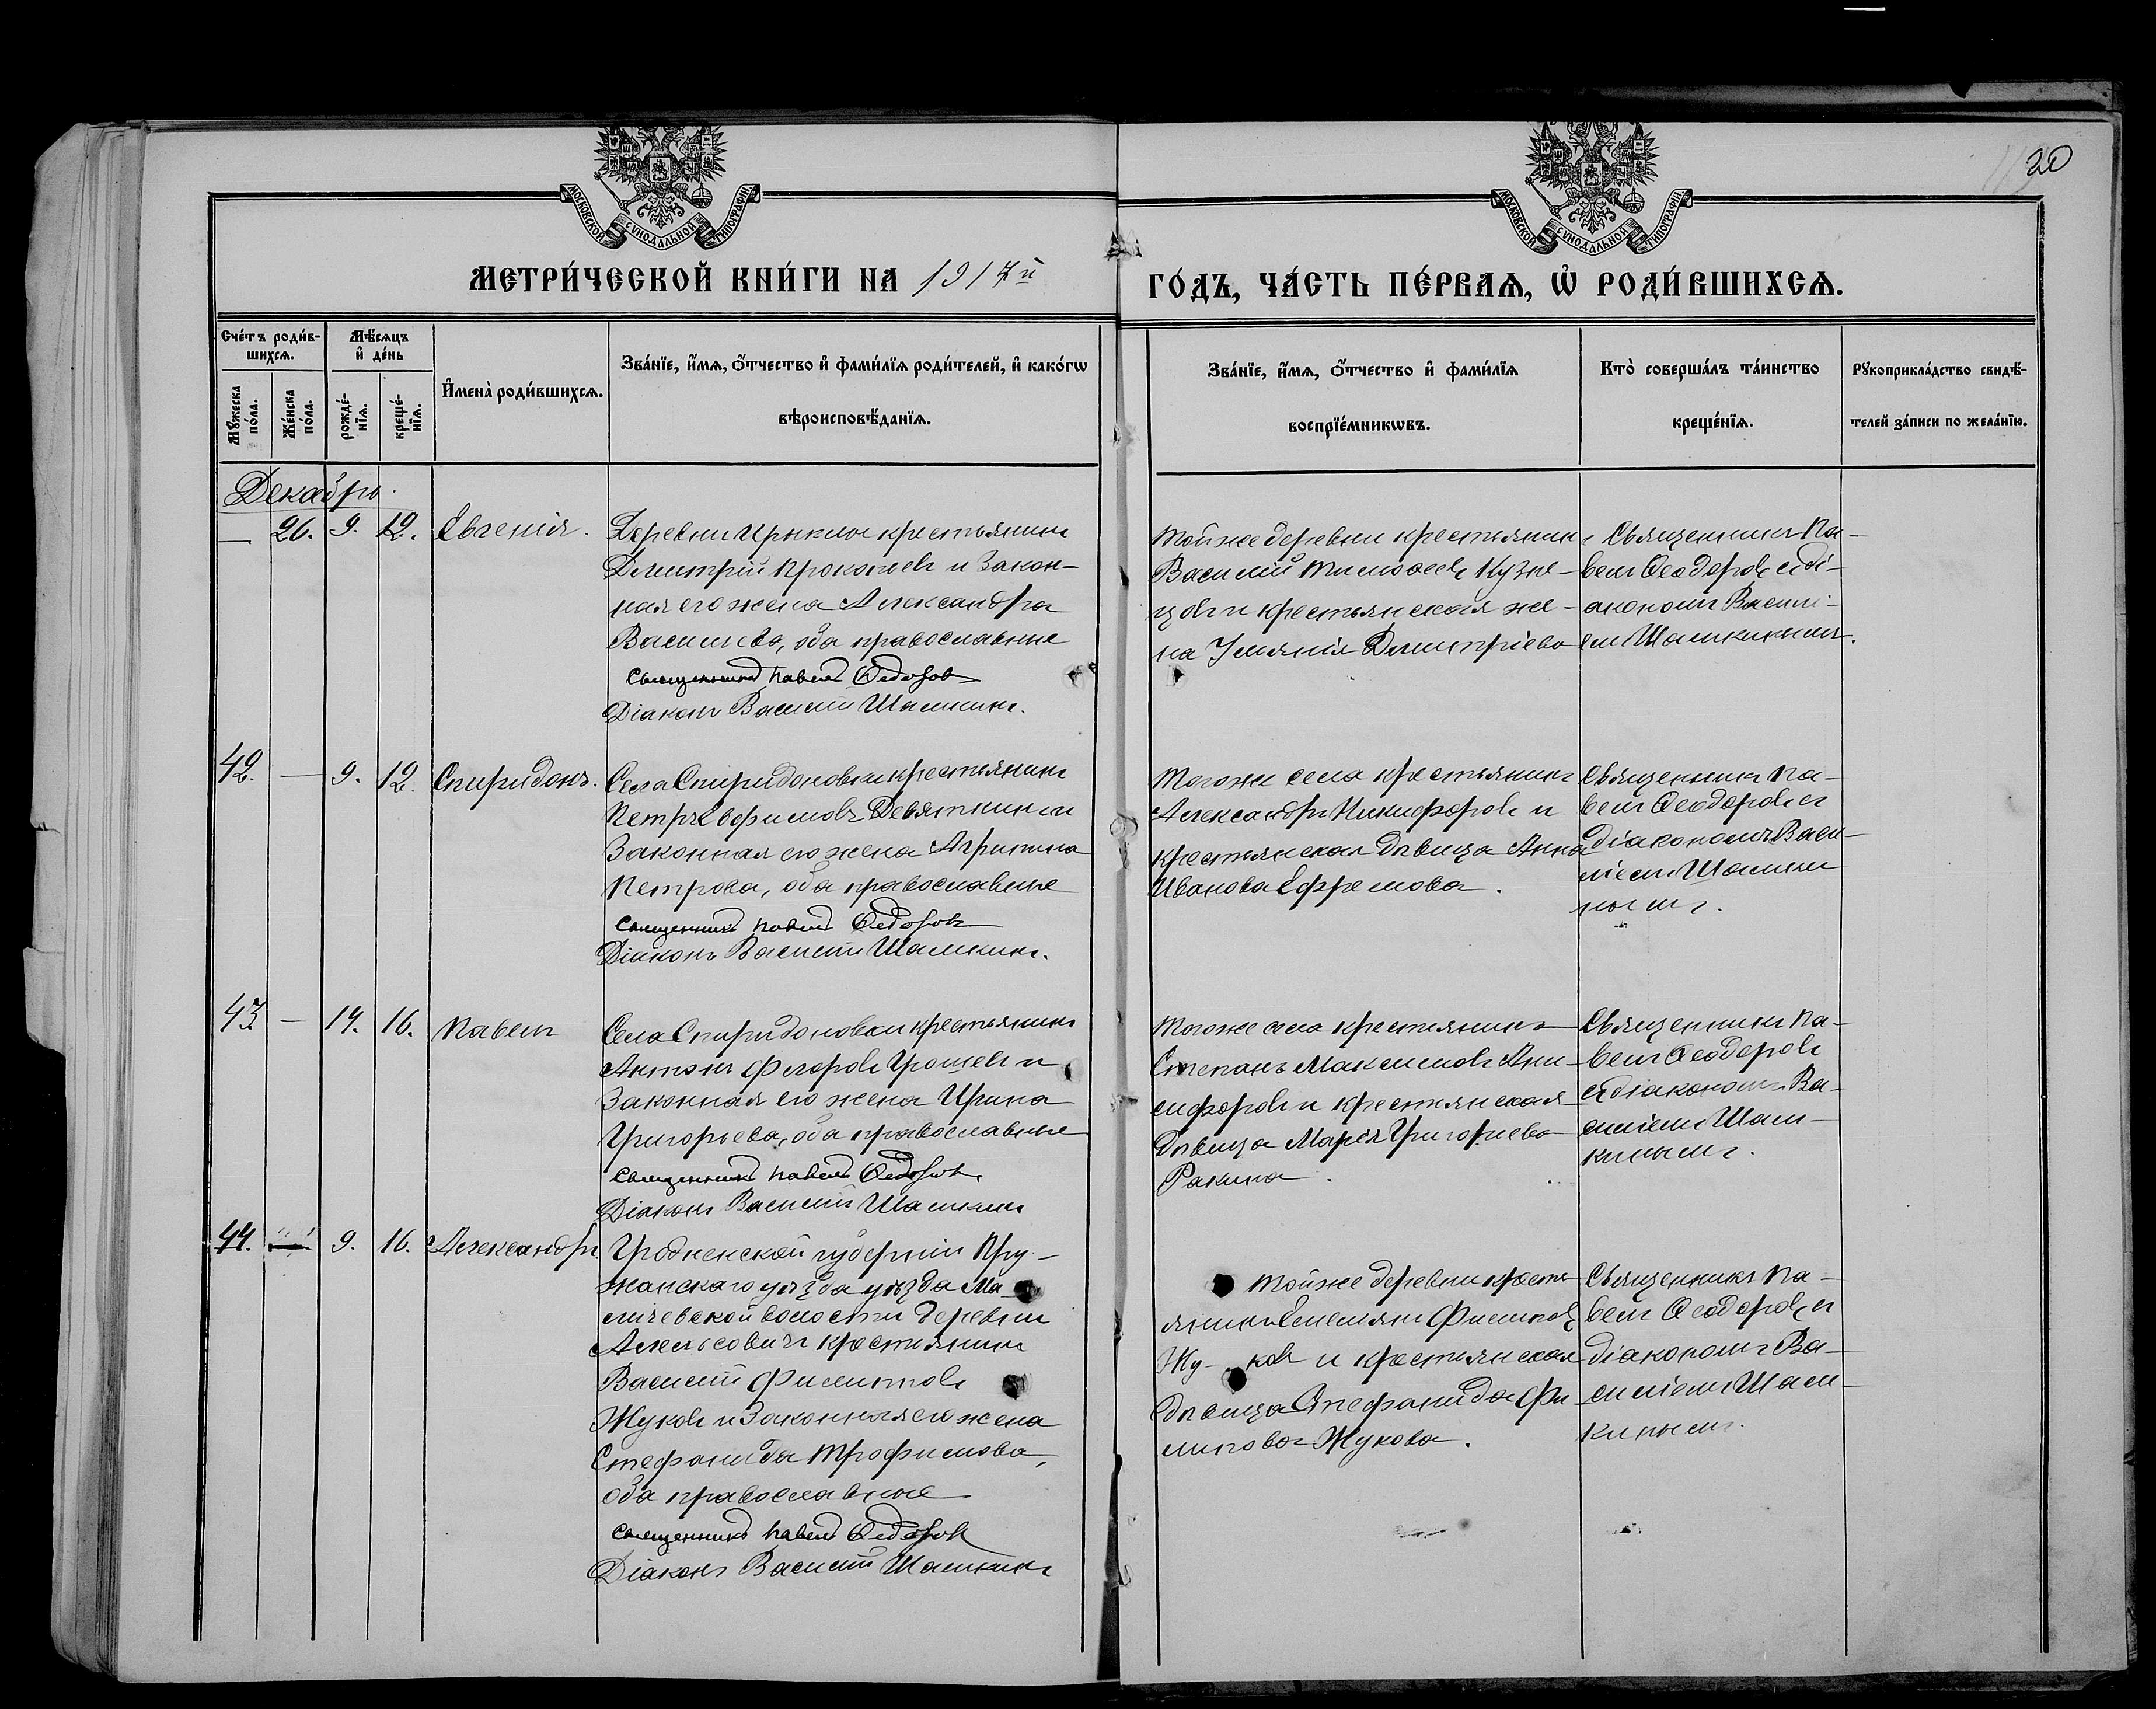 20
МОСКОВСКОЙ СѴНОДАЛЬНОЙ ТИПОГРАФІИ
МОСКОВСКОЙ СѴНОДАЛЬНОЙ ТИПОГРАФІИ
МЕТРИ́ЧЕСКОЙ КНИ́ГИ НА 1917й ГО́ДЪ, ЧА́СТЬ ПЕ́РВАѦ, Ѡ҆ РОДИ́ВШИХСѦ.
Сче́тъ роди́в-
шихсѧ.
Мѣ́сѧцъ
и҆ де́нь
Мꙋ́жеска по́ла.
Же́нска по́ла.
рожде́-нїѧ.
креще́-нїѧ.
И҆мена̀ роди́вшихсѧ.
Зва́нїе, и҆́мѧ, ѻ҆́тчество и҆ фами́лїѧ роди́телей, и҆ како́гѡ
вѣроисповѣ́данїѧ.
Зва́нїе, и҆́мѧ, ѻ҆́тчество и҆ фами́лїѧ
воспрїе́мникѡвъ.
Кто̀ соверша́лъ та́инство
креще́нїѧ.
Рꙋкоприкла́дство свидѣ́-
телей за́писи по жела́нїю.
Декабрь.
— 26. 9. 12. Евгенія.
крестьянинъ
Дмитрій Прокопьевъ и закон-
ная его жена Александра
Васильева, оба православные
Священникъ Павелъ Федоровъ
Діаконъ Василій Шамкинъ.
Той же деревни крестьянинъ
Василій Тимофеевъ Кузне-
цовъ и крестьянская же-
на Дмитріева
Священникъ Па-
велъ Ѳеодоровъ съ ді-
акономъ Василі-
емъ Шамкинымъ.
42. — 9. 12. Спиридонъ.
Села Спиридоновки крестьянинъ
Петръ Евфимовъ Девяткинъ и
Законная его жена Агрипина
Петрова, оба православные
Священникъ Павелъ Федоровъ
Діаконъ Василій Шамкинъ.
Тогоже села крестьянинъ
Александръ Никифоровъ и
крестьянская девица Анна
Иванова Ефремова.
Священникъ Па-
велъ Ѳеодоровъ съ
діакономъ Васи-
ліемъ Шамки
нымъ.
43 — 14. 16. Павелъ
Села Спиридоновки крестьянинъ
Антонъ Грошевъ и
Законная его жена Ирина
Григорьева, оба православные
Священникъ Павелъ Федоровъ
Діаконъ Василій Шамкинъ
Тогоже села крестьянинъ
Степанъ Максимовъ
и крестьянская
девица Марія Григорьева
Ракина.
Священникъ Па-
велъ Ѳеодоровъ
съ діакономъ Ва-
силіемъ Шам-
кинымъ.
44. — 9. 16. Александръ
Гродненской губерніи Пру-
жанскаго уѣзда уѣзда Ма-
личевской волости деревни
крестьянинъ
Василій Филипповъ
Жуковъ и Законная его жена
Стефанида Трофимова,
оба православные
Священникъ Павелъ Федоровъ
Діаконъ Василій Шамкинъ
Той же деревни кресть
янинъ Емельянъ Филипповъ
Жу-ковъ и крестьянская
девица Стефанида Фи-
липова Жукова.
Священникъ Па-
велъ Ѳеодоровъ съ
діакономъ Ва-
силіемъ Шам-
кинымъ.